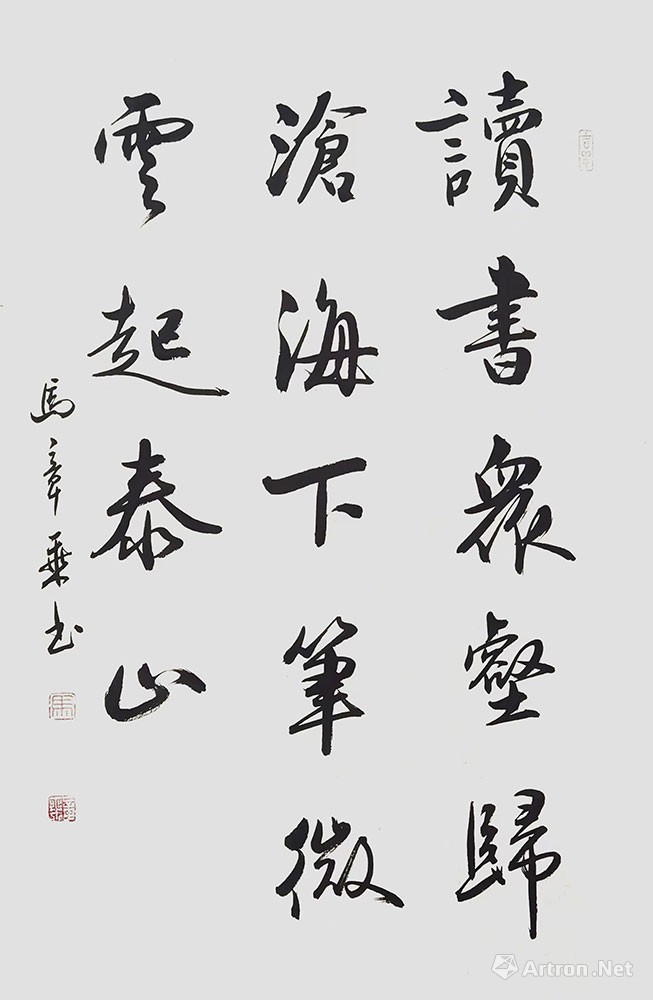 讀書衆壑歸
滄海下筆微
雲起泰山
馬章乘书
Artron.Net